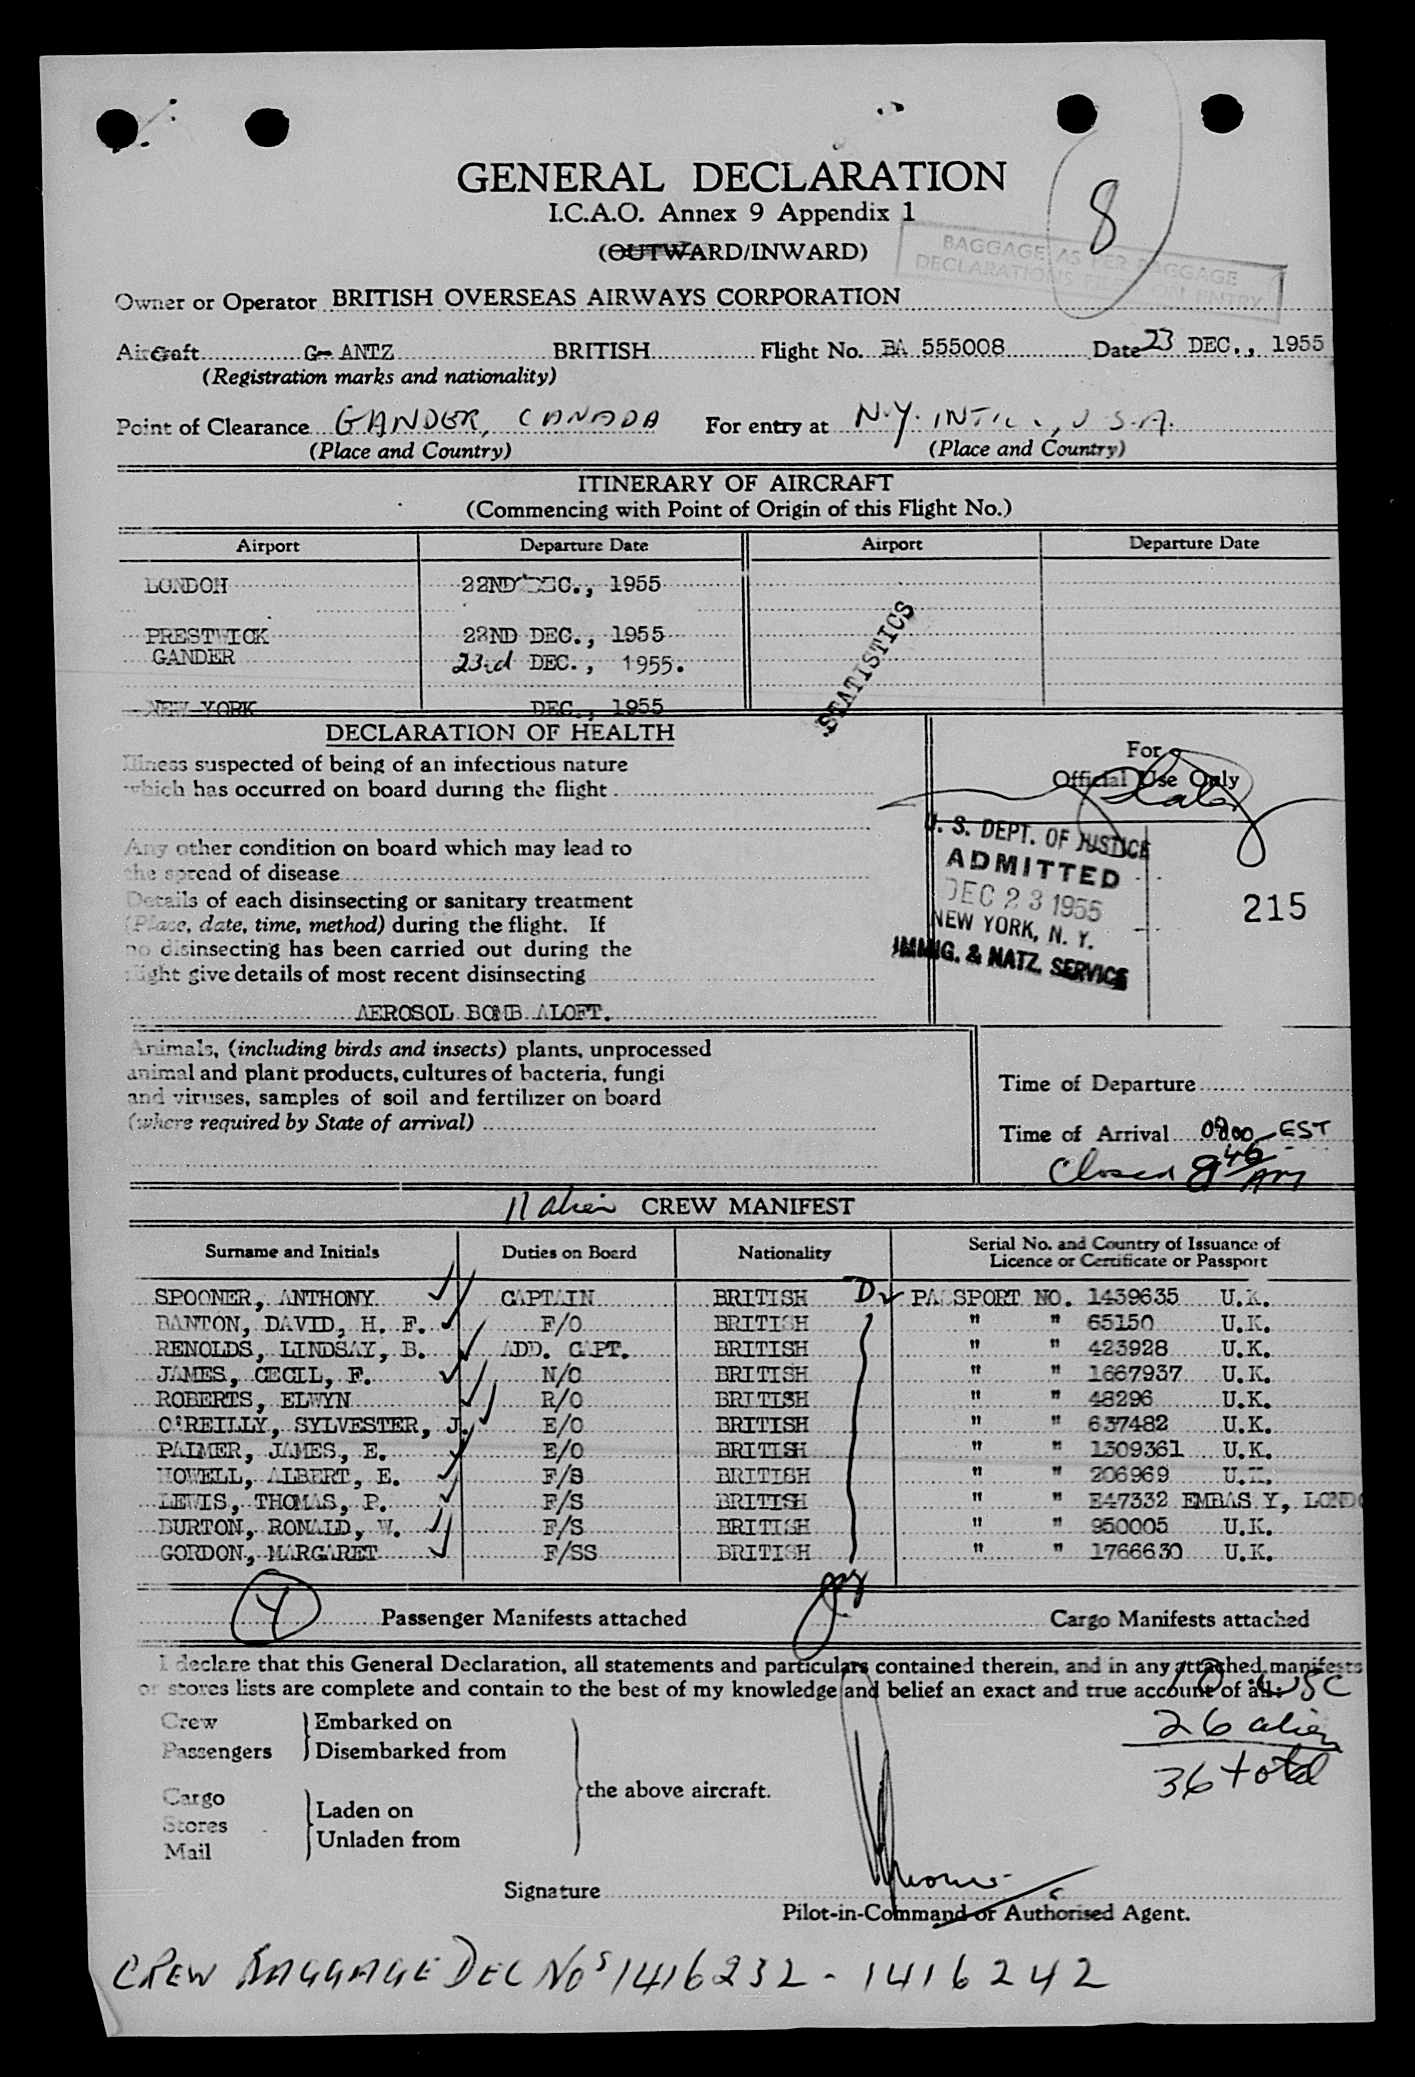 8
GENERAL DECLARATION
I.C.A.O. Annex 9 Appendix 1
(OUTWARD/INWARD)
BAGGAGE AS PER BAGGAGE
DECLARATIONS ON ENTRY
Owner or Operator BRITISH OVERSEAS AIRWAYS CORPORATION
Aircraft G-ANTZ BRITISH Flight No. BA 555008 Date 23 DEC., 1955
(Registration marks and nationality)
Point of Clearance GANDER, CANADA For entry at N.Y. INT'L., U.S.A.
(Place and Country) (Place and Country)
ITINERARY OF AIRCRAFT
(Commencing with Point of Origin of this Flight No.)
Airport Departure Date Airport Departure Date
LONDON 22ND DEC., 1955
PRESTWICK 22ND DEC., 1955
GANDER 23rd DEC., 1955.
NEW YORK DEC., 1955
STATISTICS
DECLARATION OF HEALTH
Illness suspected of being of an infectious nature
which has occurred on board during the flight
Any other condition on board which may lead to
the spread of disease
Details of each disinsecting or sanitary treatment
(Place, date, time, method) during the flight. If
no disinsecting has been carried out during the
flight give details of most recent disinsecting
AEROSOL BOMB ALOFT.
For
Official Use Only
U. S. DEPT. OF JUSTICE
ADMITTED
DEC 23 1955
NEW YORK, N. Y.
IMMIG. & NATZ. SERVICE
215
Animals, (including birds and insects) plants, unprocessed
animal and plant products, cultures of bacteria, fungi
and viruses, samples of soil and fertilizer on board
(where required by State of arrival)
Time of Departure
Time of Arrival 0800 EST
Closed 8 46 AM
11 alien CREW MANIFEST
Surname and Initials Duties on Board Nationality Serial No. and Country of Issuance of
Licence or Certificate or Passport
SPOONER, ANTHONY CAPTAIN BRITISH D PASSPORT NO. 1439635 U.K.
BANTON, DAVID, H. F. F/O BRITISH " " 65150 U.K.
RENOLDS, LINDSAY, B. ADD. CAPT. BRITISH " " 423928 U.K.
JAMES, CECIL, F. N/O BRITISH " " 1667937 U.K.
ROBERTS, ELWYN R/O BRITISH " " 48296 U.K.
O'REILLY, SYLVESTER, J. E/O BRITISH " " 637482 U.K.
PALMER, JAMES, E. E/O BRITISH " " 1309361 U.K.
HOWELL, ALBERT, E. F/S BRITISH " " 206969 U.K.
LEWIS, THOMAS, P. F/S BRITISH " " E47332 EMBAS Y, LONDO
BURTON, RONALD, W. F/S BRITISH " " 950005 U.K.
GORDON, MARGARET F/SS BRITISH " " 1766630 U.K.
4 Passenger Manifests attached Cargo Manifests attached
I declare that this General Declaration, all statements and particulars contained therein, and in any attached manifests
or stores lists are complete and contain to the best of my knowledge and belief an exact and true account of all:
10 USC
26 alien
36 total
Crew Embarked on
Passengers Disembarked from
the above aircraft.
Cargo
Stores
Mail
Laden on
Unladen from
Signature
Pilot-in-Command or Authorised Agent.
CREW BAGGAGE DEC Nos 1416232 - 1416242